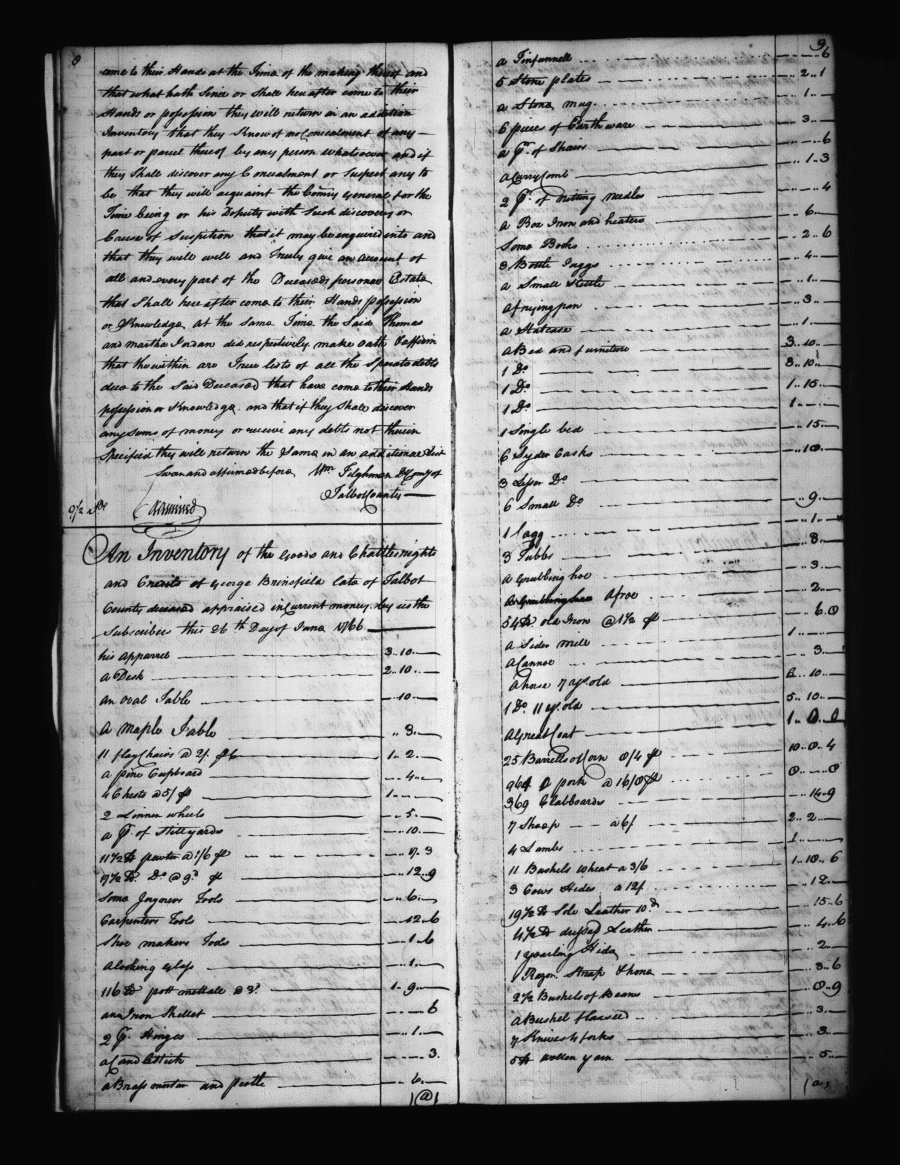 8
came to their Hands at the Time of the making thereof and
that what hath Since or Shall hereafter come to their
Hands or possession they will return in an addition
Inventory that they Know of no Concealment of any
part or parcel thereof by any person whatsoever and if
they Shall discover any Concealment or Suspect any to
be that they will acquaint the Comry General for the
Time being or his Deputy with Such discovery or
Cause of Suspition that it may be enquired into and
that they will well and Truly give an account of
all and every part of the Deceaseds personal Estate
that Shall hereafter come to their Hands possession
or Knowledge at the Same Time the Said Thomas
and Martha Jordan did respectively make Oath & affirm
that the within are True lists of all the Sperate debts
due to the Said Deceased that have come to their Hands
possession or Knowledge and that if they Shall discover
any Sums of money or receive any debts not therein
Specified they will return the Same in an additional List
Sworn and affirmed before Wm Tilghman Dy Comry of
Talbot County
Examined
An Inventory of the Goods and Chattles rights
and Credits of George Brinsfield late of Talbot
County deceased appraised in Current money by us the
Subscribers this 26th Day of June 1766
his apparrel 3..10..
a Desk 2..10..
an oval Table ..10..
a maple Table ..8..
11 flag Chairs @ 2/. 1..2..
a pine Cupboard ..4..
4 Chests @ 5/ 1..
2 Linnen wheels ..5..
a pr. of Stillyards ..10..
11 1/2 lb pewter @ 1/6 17..3
17 1/2 lb Do @ 9d ..12..9
Some Joyners Tools ..6..
Carpenters Tools ..12..6
Shoe makers Tools ..1..6
a looking Glass ..1..
116 lb pott mettale @ 3d 1..9..
an Iron Skillet ..6
2 pr. Hinges ..1..
a Candlestick ..3
a Brass mortar and pestle ..6..
9
a Tinfunnell ..6
5 Stone plates 2..1
a Stone mug ..1..
6 pieces of Earthware ..3..
a pr. of Shears ..6
a Curry Comb ..1..3
2 pr. of Nitting needles ..4
a Box Iron and heaters ..6..
Some Books ..2..6
3 Bottle Juggs ..4..
a Small Kettle ..1..
a frying pan ..3..
a ..1..
a Bed and furniture 3..10..
1 Do 3..10..
1 Do 1..15..
1 Do 1..
1 Single bed ..15..
6 Syder Casks ..10..
3 Leser Do
6 Small Do ..9..
1 Cagg ..1..
3 Tubbs ..3..
a Grubbing hoe ..3..
A froe ..2..
54 lb old Iron @ 1 1/2 ..6..8
a Sider mill 1..
a Cannoe ..3..
a horse 7 yrs. old 10..
1 Do 11 yrs. old 5..10..
a Great Coat 1..0..0
25 Barrells of Corn 8/4 10..8..4
pork @ 16/8 8..8
369 Clabboards ..14..9
7 Sheep @ 6/ 2..2..
4 Lambs 1..
11 Bushels wheat a 3/6 1..18..6
3 Cows Hides a ..12..
19 1/2 lb Sole Leather 10d ..15..6
4 1/2 lb dressed Leather ..4..6
1 yearling Hide ..2..
1 Razor Strap & hone ..3..6
2 1/2 Bushels of Beans ..8..9
a Bushel flaxseed ..3..
7 Knives 4 forks ..3..
5 lb wollen yarn ..5..